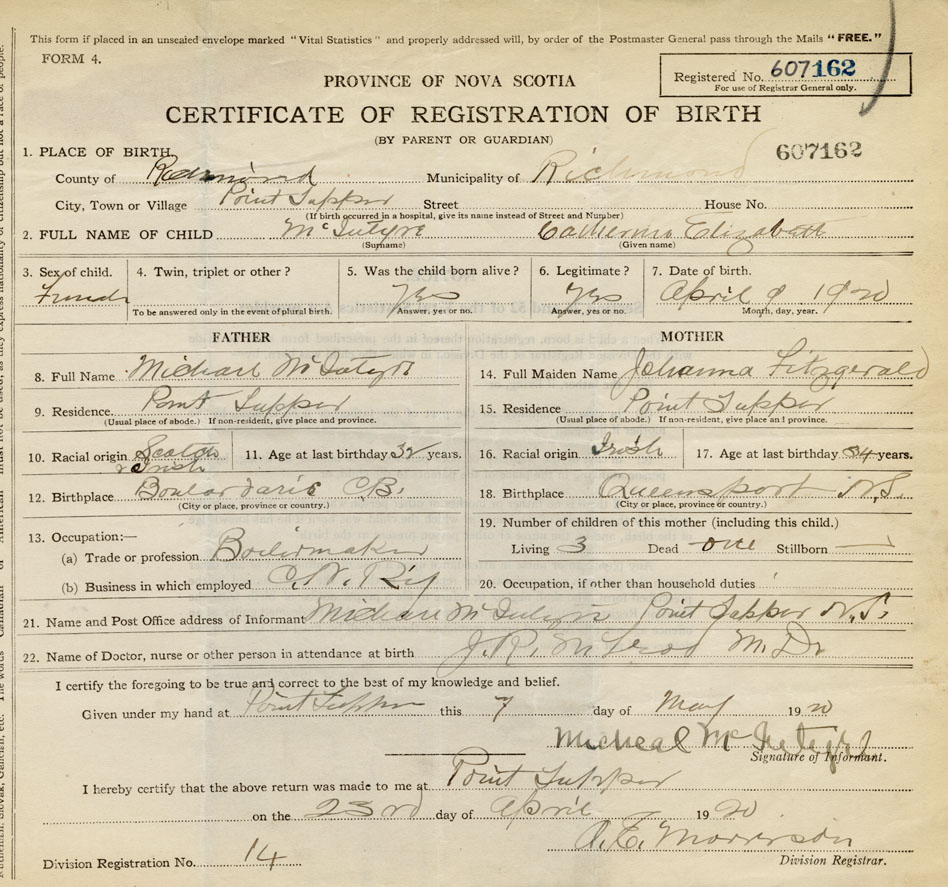 This form if placed in an unsealed envelope marked "Vital Statistics" and properly addressed will, by order of the Postmaster General pass through the Mails "FREE."
FORM 4.
Registered No. 607162
For use of Registrar General only.
PROVINCE OF NOVA SCOTIA
CERTIFICATE OF REGISTRATION OF BIRTH
(BY PARENT OR GUARDIAN)
607162
1. PLACE OF BIRTH.
County of Richmond Municipality of Richmond
City, Town or Village Point Tupper Street House No.
(If birth occurred in a hospital, give its name instead of Street and Number)
2. FULL NAME OF CHILD McIntyre Catherine Elizabeth
(Surname) (Given name)
3. Sex of child. 4. Twin, triplet or other? 5. Was the child born alive? 6. Legitimate? 7. Date of birth.
Female Yes Yes April 9 1920
To be answered only in the event of plural birth. Answer, yes or no. Answer, yes or no. Month, day, year.
FATHER MOTHER
8. Full Name Michael McIntyre 14. Full Maiden Name Johanna Fitzgerald
9. Residence. Point Tupper 15. Residence Point Tupper
(Usual place of abode.) If non-resident, give place and province. (Usual place of abode.) If non-resident, give place and province.
10. Racial origin Scotch & Irish 11. Age at last birthday 32 years. 16. Racial origin Irish 17. Age at last birthday 34 years.
12. Birthplace Boulardarie C.B. 18. Birthplace Queensport N.S.
(City or place, province or country.) (City or place, province or country.)
13. Occupation:— 19. Number of children of this mother (including this child.)
(a) Trade or profession Boilermaker Living 3 Dead one Stillborn —
(b) Business in which employed C.N. Rly 20. Occupation, if other than household duties
21. Name and Post Office address of Informant Michael McIntyre Point Tupper N.S.
22. Name of Doctor, nurse or other person in attendance at birth J.R. McLeod M.Dr
I certify the foregoing to be true and correct to the best of my knowledge and belief.
Given under my hand at Point Tupper this 7 day of May 1920
Micheal McIntyre
Signature of Informant.
I hereby certify that the above return was made to me at Point Tupper
on the 23rd day of April 1920
Morrison
Division Registrar.
Division Registration No. 14